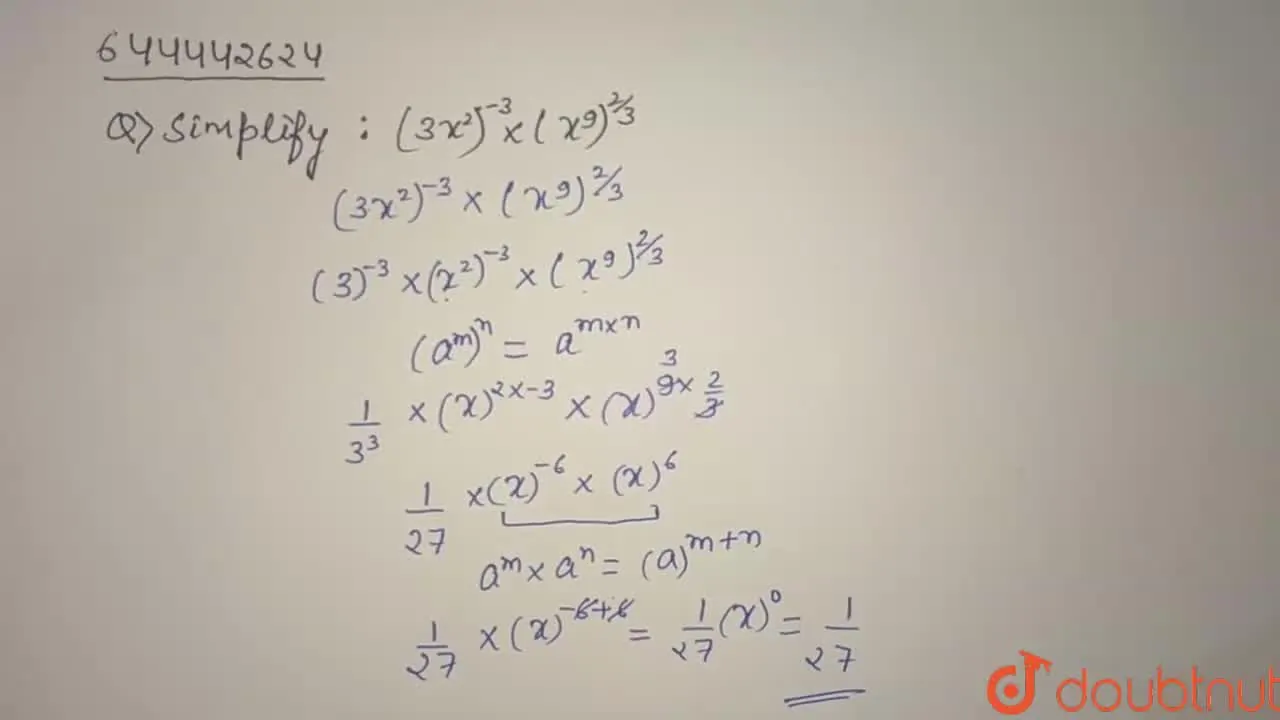 644442624
Q> Simplify : (3x²)⁻³ × (x⁹)^2/3
(3x²)⁻³ × (x⁹)^2/3
(3)⁻³ × (x²)⁻³ × (x⁹)^2/3
(aᵐ)ⁿ = a^m×n
1/3³ × (x)^2×-3 × (x)^9×2/3 3
1/27 × (x)⁻⁶ × (x)⁶
aᵐ × aⁿ = (a)^m+n
1/27 × (x)^-6+6 = 1/27 (x)⁰ = 1/27
doubtnut